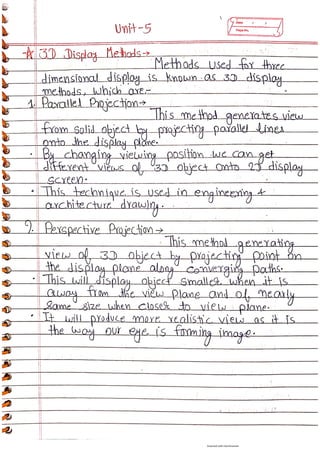 Unit-5
3D Display Methods →
Methods used for three
dimensional display is known as 3D display
methods, which are:-
1. Parallel Projection →
This method generates view
from solid object by projecting parallel lines
onto the display plane.
• By changing viewing position we can get
different views of 3D object onto 2D display
screen.
• This technique is used in engineering &
architecture drawing.
2. Perspective Projection →
This method generating
view of 3D object by projecting point on
the display plane along converging paths.
• This will display object smallest when it is
away from the view plane and of nearly
same size when closest to view plane.
• It will produce more realistic view as it is
the way our eye is forming image.